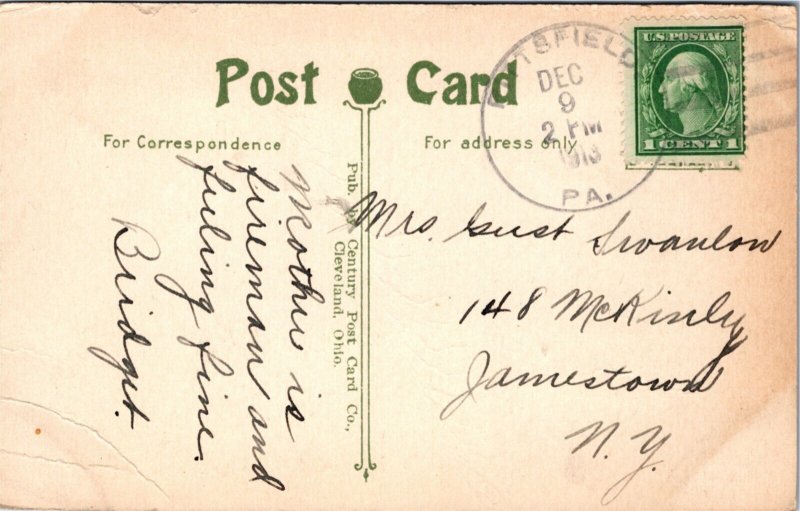 Post Card
For Correspondence
For address only
PITTSFIELD
DEC
9
2 PM
1913
PA.
U.S. POSTAGE
1 CENT 1
Mother is
fireman and
feeling fine.
Bridget.
Pub. by Century Post Card Co.,
Cleveland, Ohio.
Mrs. Gust Swanson
148 McKinly
Jamestown
N.Y.